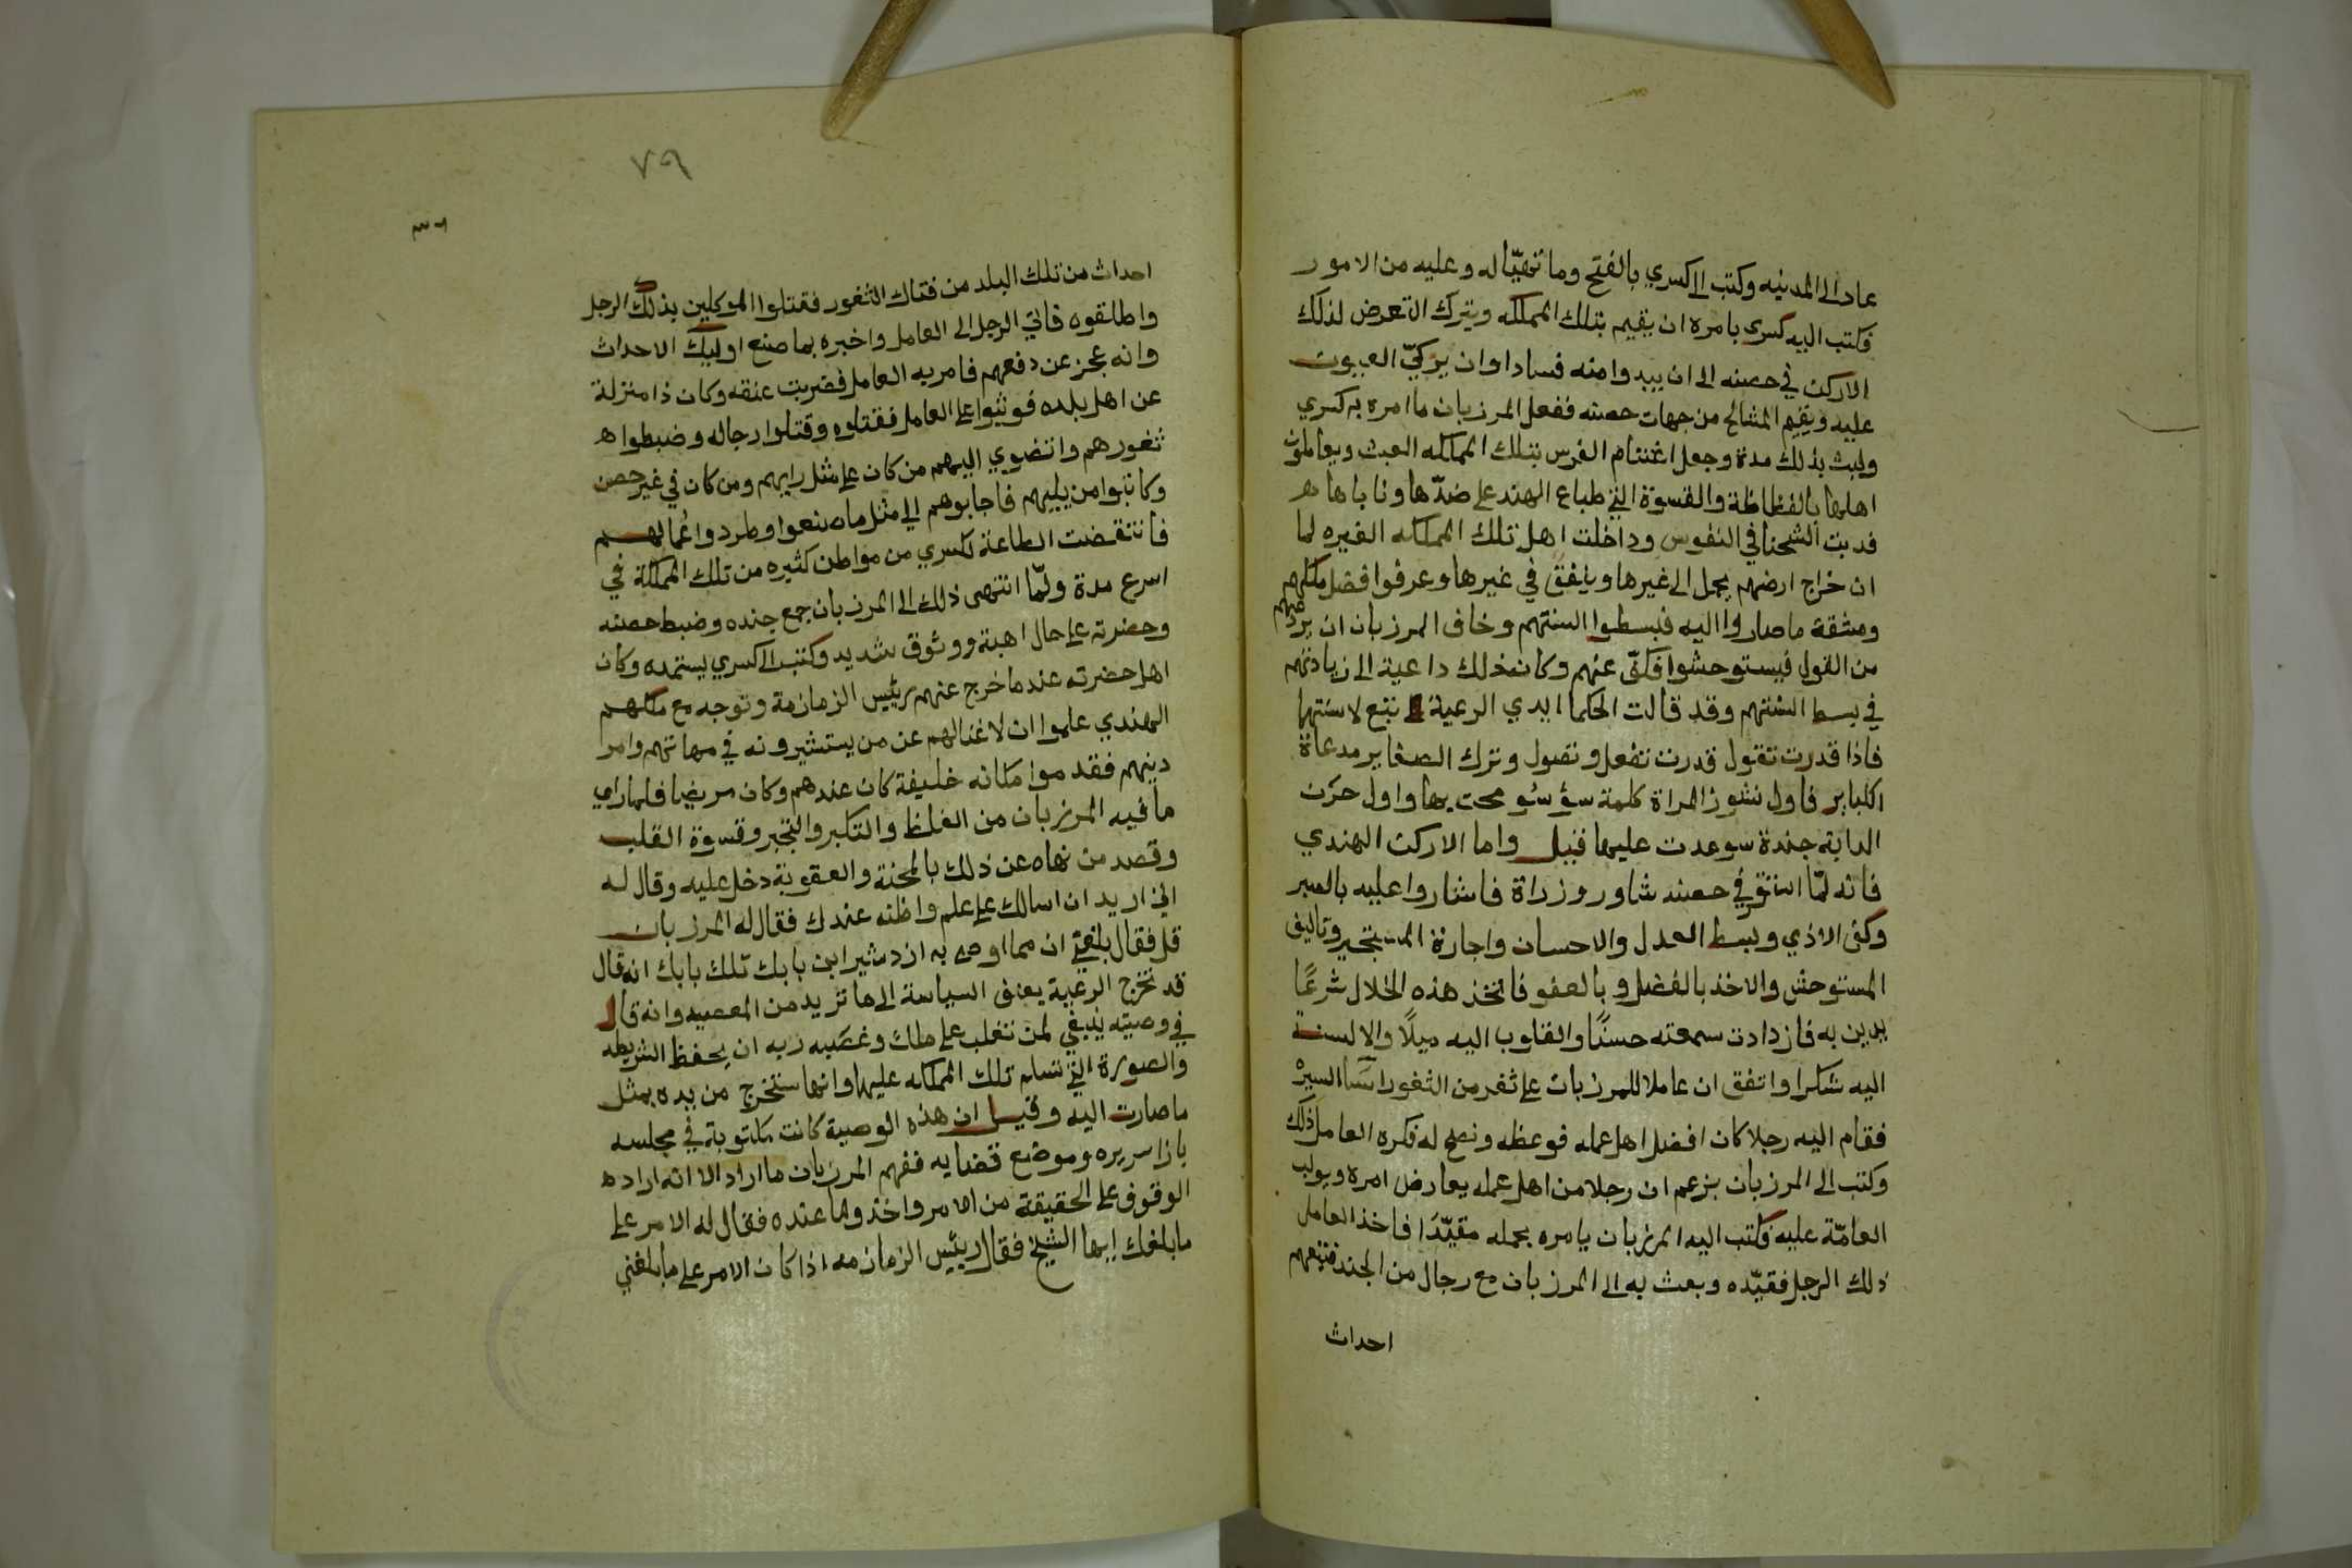 عاد الى المدينه وكتب الى كسري بالفتح وما تهيّا له وعليه من الامور
فكتب اليه كسرى يامره ان يقيم بتلك المملكه ويترك التعرض لذلك
الاركن في حصنه الى ان يبدوا منه فسادا وان يزكيّ العيون
عليه ويقيم المشالح من جهات حصنه ففعل المرزبان ما امره به كسري
ولبث بذلك مدة وجعل اغتنام الفرس بتلك المملكه العبث ويعاملون
اهلها بالفظاظة والقسوة التي طباع الهند على ضدّها وناباها ه
فدبت الشحنا في النفوس وداخلت اهل تلك المملكه الغيره لما
ان خراج ارضهم يحمل الى غيرها وينفق في غيرها وعرفوا فضل ملكهم
ومشقة ما صاروا اليه فبسطوا السنتهم وخاف المرزبان ان يردعهم
من القول فيستوحشوا فكفّ عنهم وكان ذلك داعية الى زيادتهم
في بسط السنتهم وقد قالت الحكما ايدي الرعية تبع لاسنتها
فاذا قدرت تقول قدرت تفعل وتصول وترك الصغاير مدعاة
الكباير فاول نشوز المراة كلمة سؤ سُو محت بها واول حرن
الدابة جندة سوعدت عليها فقيل واما الاركن الهندي
فانه لمّا استقر في حصنه شاور وزراة فاشاروا عليه بالصبر
وكف الاذي وبسط العدل والاحسان واجارة المستجير وتاليف
المستوحش والاخذ بالفضل وبالعفو فاتخذ هذه الخلال شرعًا
يدين به فازدادت سمعته حسنًا والقلوب اليه ميلًا والالسنة
اليه شكرا واتفق ان عاملا للمرزبان على ثغر من الثغور اسّا السيره
فقام اليه رجلا كان افضل اهل عمله فوعظه ونصح له فكره العامل ذلك
وكتب الى المرزبان يزعم ان رجلا من اهل عمله يعارض امره ويولب
العامّة عليه فكتب اليه المرزبان يامره بحمله مقيّدًا فاخذ العامل
ذلك الرجل فقيّده وبعث به الى المرزبان مع رجال من الجند فتبعهم
احداث
٧٩
احداث من تلك البلد من فتاك الثغور فقتلوا الموكلين بذلك الرجل
واطلقوه فاتي الرجل الى العامل واخبره بما صنع اوليك الاحداث
وانه عجز عن دفعهم فامر به العامل فضربت عنقه وكان ذا منزلة
عن اهل بلده فوثبوا على العامل فقتلوه وقتلوا رجاله وضبطوا ه
ثغورهم وانضوي اليهم من كان على مثل رايهم ومن كان في غير حصن
وكاتبوا من يليهم فاجابوهم الي مثل ما صنعوا وطردوا عُمالهم
فانتقضت الطاعة لكسري من مواطن كثيره من تلك المملكة في
اسرع مدة ولمّا انتهى ذلك الى المرزبان جمع جنده وضبط حصنه
وحضرته على حال اهبة ووثوق شديد وكتب الى كسري يستمده وكان
اهل حضرته عندما خرج عنهم رئيس الزمازمة وتوجه مع ملكهم
الهندي علموا ان لا غنا لهم عن من يستشيرونه في مهماتهم وامر
دينهم فقدموا مكانه خليفة كان عندهم وكان مريضا فلما راى
ما فيه المرزبان من الغلظ والتكبر والتجبر وقسوة القلب
وقصد من نهاه عن ذلك بالمحنة والعقوبة دخل عليه وقال له
اني اريد ان اسالك على علم واظنه عندك فقال له المرزبان
قل فقال بلغني ان مما اوصى به ازدشير ابن بابك تلك بابك انه قال
قد تخرج الرعية يعنف السياسة الى ما تريد من المعصيه وانه قال
في وصيته ينبغي لمن تغلب على ملك وغصبه ربه ان يحفظ الشريطه
والصورة التي تسلم تلك المملكه عليها وانها ستخرج من يده بمثل
ما صارت اليه وقيل ان هذه الوصية كانت مكتوبة في مجلسه
بازا سريره وموضع قضايه ففهم المرزبان ما اراد الا انه اراد ه
الوقوف على الحقيقة من الامر واخذ وما عنده فقال له الامر على
ما بلغك ايها الشيخ فقال رييس الزمازمه اذا كان الامر على ما بلغني